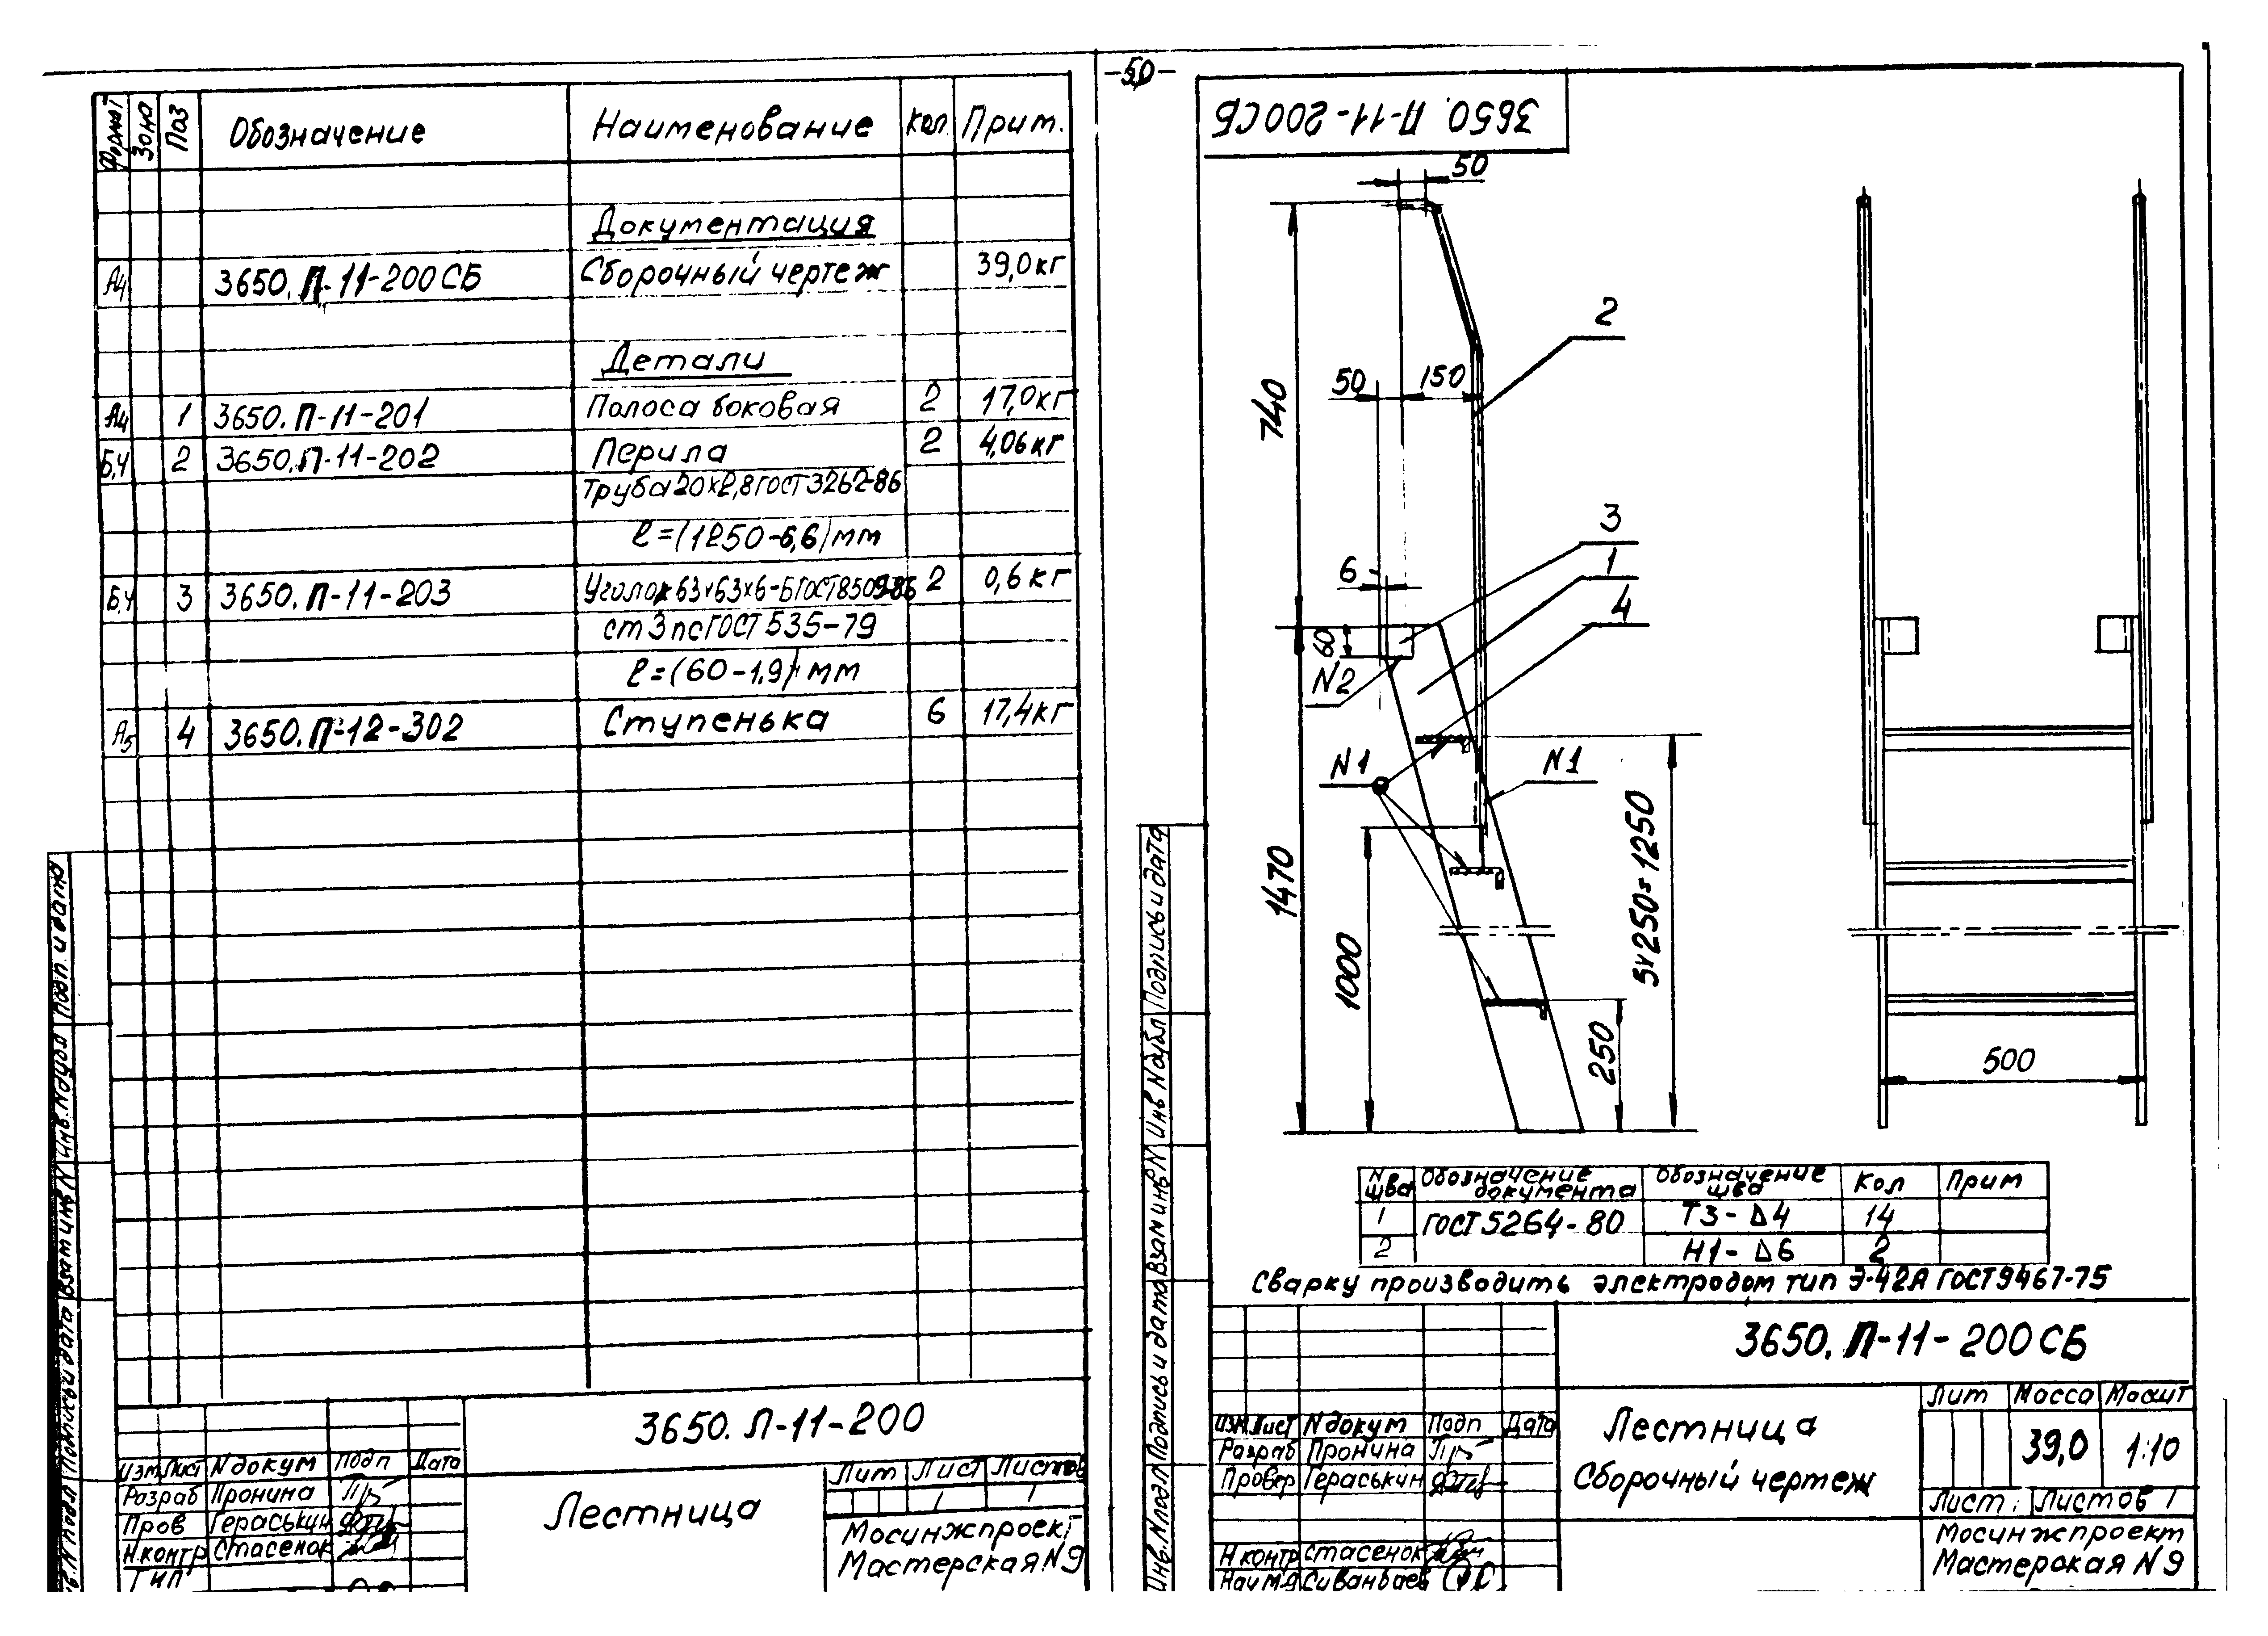 -50-
Формат Зона Поз Обозначение Наименование Кол. Прим.
Документация
А4 3650.П-11-200СБ Сборочный чертеж 39,0кг
Детали
А4 1 3650.П-11-201 Полоса боковая 2 17,0кг
Б.Ч 2 3650.П-11-202 Перила 2 4,06кг
Труба 20х2,8 ГОСТ 3262-86
ℓ=(1250-6,6) мм
Б.Ч 3 3650.П-11-203 Уголок 63х63х6-Б ГОСТ 8509-86 2 0,6кг
ст 3 пс ГОСТ 535-79
ℓ=(60-1,9) мм
А5 4 3650.П-12-302 Ступенька 6 17,4кг
Подп. и дата
Инв.№дубл
Взам инв N
Подпись и дата
Инв.N подл
3650.П-11-200
Изм Лист N докум Подп Дата
Разраб Пронина
Пров Гераськин
Н.контр Стасенок
Тип
Лестница
Лит Лист Листов
1 1
Мосинжпроект
Мастерская N9
3650.П-11-200СБ
50
2
740
50 150
3
6
1
4
60
N2
N1
N1
1470
1000
5х250=1250
250
500
N шва Обозначение документа Обозначение шва Кол Прим
1 ГОСТ 5264-80 Т3-Δ4 14
2 Н1-Δ6 2
Сварку производить электродом тип Э-42А ГОСТ 9467-75
Подпись и дата
Инв Nдубл
Взам инв N
Подпись и дата
Инв.N подл
3650.П-11-200СБ
Изм Лист N докум Подп Дата
Разраб Пронина
Провер Гераськин
Н контр Стасенок
Лестница
Сборочный чертеж
Лит Масса Масшт
39,0 1:10
Лист Листов 1
Мосинжпроект
Мастерская N9